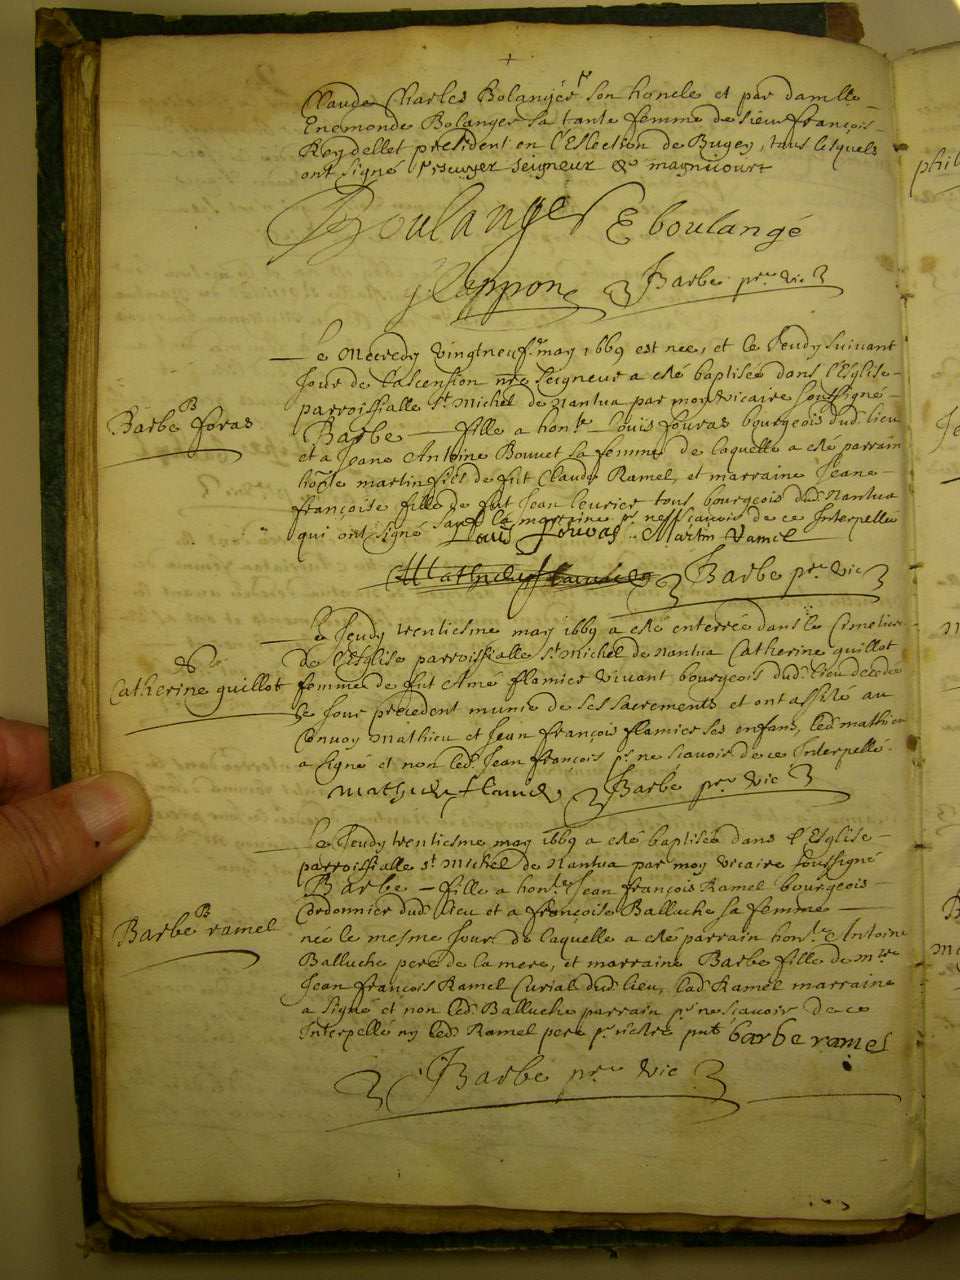 Claude Charles Bolanger son honcle et par damlle
Enemonde Bolanger sa tante femme de sieur françois
Reydellet president en l'Eslection de Bugey, tous lesquels
ont signé seigneur magnicourt
Boulanger E boulangé
Barbe pre vic
Le Mecredy vingtneufe may 1669 est née, et le Jeudy suivant
Jour de l'ascension nre seigneur a esté baptisée dans l'Esglise
parroissialle St Michel de Nantua par moy vicaire soussigné
B
Barbe foras
Barbe – fille a honle Louis fouras bourgeois dud. lieu
et a Jeane Antoine Bouvet sa femme de laquelle a esté parrain
honle martin fils de fut Claude Ramel, et marraine Jeane
françoise fille de fut Jean leurier tous bourgeois dud. Nantua
qui ont signé sauf la marraine pr ne sçavoir de ce Interpellé
Louis fouras Martin Ramel
Barbe pre vic
Le Jeudy trentiesme may 1669 a esté enterrée dans le Cimetiere
de l'Esglise parroissialle St Michel de Nantua Catherine guillot
Catherine guillot
femme de fut Amé flamier vivant bourgeois dud. lieu decedée
le Jour precedent munie de ses sacrements et ont assisté au
Convoy Mathieu et Jean françois flamier ses enfans, led. mathieu
a signé et non led. Jean françois pr ne sçavoir de ce Interpellé
Barbe pre vic
Le Jeudy trentiesme may 1669 a esté baptisée dans l'Esglise
parroissialle St Michel de Nantua par moy vicaire soussigné
B
Barbe ramel
Barbe – fille a honle Jean françois Ramel bourgeois
Cordonnier dud. lieu et a françoise Balluche sa femme
née le mesme Jour de laquelle a esté parrain honle Antoine
Balluche pere de la mere, et marraine Barbe fille de mtre
Jean françois Ramel Curial dud. lieu, lad. Ramel marraine
a signé et non led. Balluche parrain pr ne sçavoir de ce
Interpellé ny led. Ramel pere pr n'estre pnt barbe ramel
Barbe pre vic